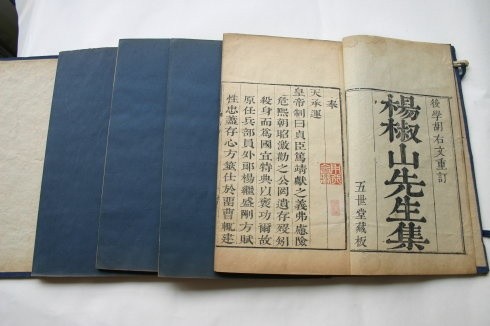 後學胡右文重訂
楊椒山先生集
五世堂藏板
奉
天承運
皇帝制曰貞臣篤靖獻之義弗慮險
危熙朝昭激勸之公罔遺存歿矧
殺身而爲國宜特典以褒功爾故
原任兵部員外郎楊繼盛剛方賦
性忠藎存心方筮仕於留曹輒建